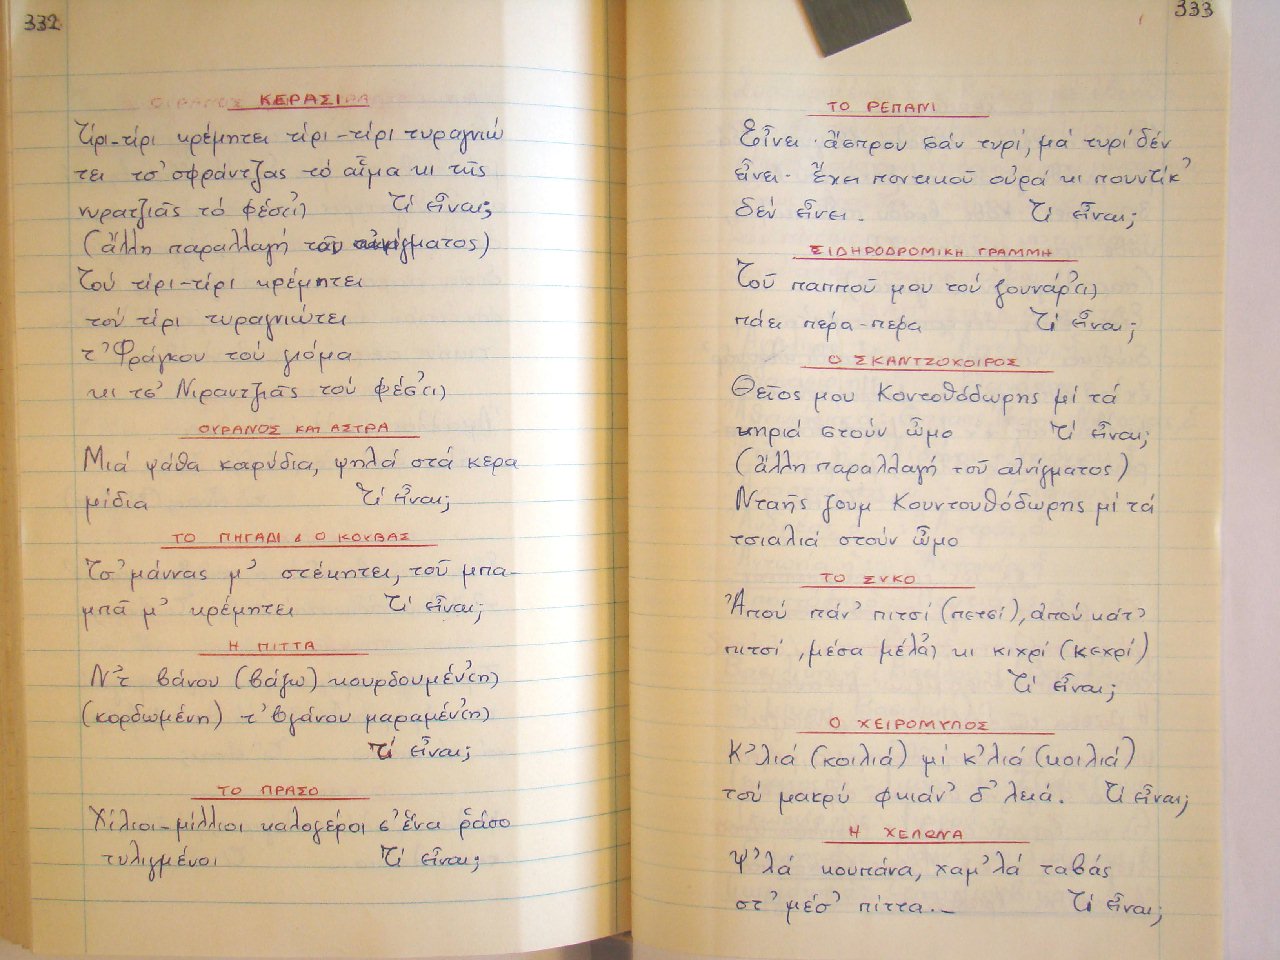 332
ΚΕΡΑΣΙ
Τίρι-τίρι κρέμητει τίρι-τίρι τυραγνιώ
τει τσ' σφράντζας τό αἷμα κι τῆς
νυρατζιᾶς τό φέσ(ι) Τί εἶναι;
(ἄλλη παραλλαγή τοῦ αἰνίγματος)
Τού τίρι-τίρι κρέμητει
τού τίρι τυραγνιώτει
τ' Φράγκου τού γιόμα
κι τσ' Νιραντζιᾶς τού φέσ'(ι)
ΟΥΡΑΝΟΣ ΚΑΙ ΑΣΤΡΑ
Μιά ψάθα καρύδια, ψηλά στά κερα
μίδια Τί εἶναι;
ΤΟ ΠΗΓΑΔΙ & Ο ΚΟΥΒΑΣ
Τσ' μάννας μ' στέκητει, τοῦ μπα-
μπᾶ μ' κρέμητει Τί εἶναι;
Η ΠΙΤΤΑ
Ν'τ βάνου (βάζω) κουρδουμέν'(η)
(κορδωμένη) τ' βγάνου μαραμέν'(η)
Τί εἶναι;
ΤΟ ΠΡΑΣΟ
Χίλιοι-μίλλιοι καλογέροι σ' ἕνα ῥάσο
τυλιγμένοι Τί εἶναι;
333
ΤΟ ΡΕΠΑΝΙ
Εἶνει ἄσπρου σάν τυρί, μά τυρί δέν
εἶνει. Ἔχει ποντικοῦ οὐρά κι πουντίκ'
δέν εἶνει. Τί εἶναι;
ΣΙΔΗΡΟΔΡΟΜΙΚΗ ΓΡΑΜΜΗ
Τοῦ παπποῦ μου τού ζουνάρ'(ι)
πάει πέρα-πέρα Τί εἶναι;
Ο ΣΚΑΝΤΖΟΧΟΙΡΟΣ
Θεῖος μου Κοντοθόδωρης μί τά
κηριά στούν ὦμο Τί εἶναι;
(ἄλλη παραλλαγή τοῦ αἰνίγματος)
Νταῆς ζουμ Κουντουθόδωρης μί τά
τσιαλιά στούν ὦμο
ΤΟ ΣΥΚΟ
Ἀπού πάν' πιτσί (πετσί), ἀπού κάτ'
πιτσί, μέσα μέλ'(ι) κι κιχρί (κεχρί)
Τί εἶναι;
Ο ΧΕΙΡΟΜΥΛΟΣ
Κ'λιά (κοιλιά) μί κ'λιά (κοιλιά)
τού μακρύ φκιάν' δ'λειά. Τί εἶναι;
Η ΧΕΛΩΝΑ
Ψ'λά κουπάνα, χαμ'λά ταβάς
στ' μέσ' πίττα.- Τί εἶναι;